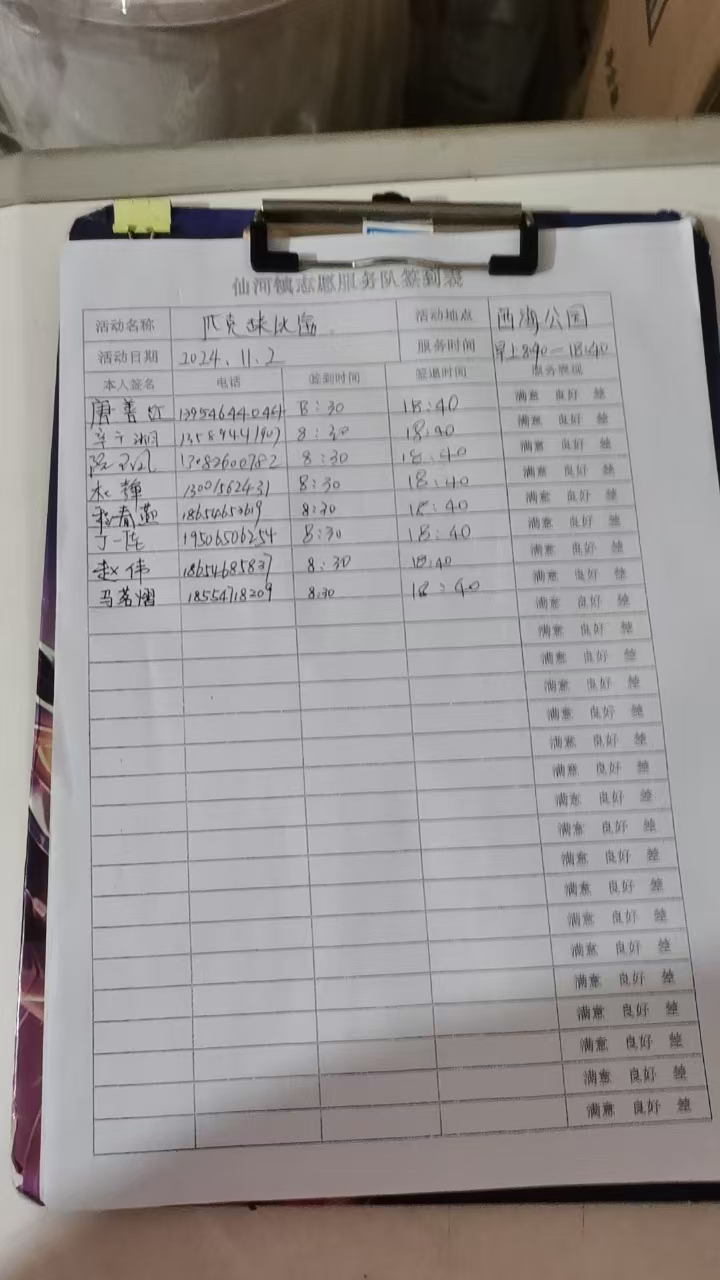 仙河镇志愿服务队签到表
活动名称 匹克球比赛 活动地点 西湖公园
活动日期 2024.11.2 服务时间 早上8:40-18:40
本人签名 电话 签到时间 签退时间 服务表现
唐善 13954644046 8:30 18:40 满意 良好 差
13589441907 8:30 18:40 满意 良好 差
13082600782 8:30 18:40 满意 良好 差
杜静 13001562431 8:30 18:40 满意 良好 差
程春燕 18654653619 8:30 18:40 满意 良好 差
丁一陆 19506506254 8:30 18:40 满意 良好 差
赵伟 18654685837 8:30 18:40 满意 良好 差
马茗熠 18554718209 8:30 18:40 满意 良好 差
满意 良好 差
满意 良好 差
满意 良好 差
满意 良好 差
满意 良好 差
满意 良好 差
满意 良好 差
满意 良好 差
满意 良好 差
满意 良好 差
满意 良好 差
满意 良好 差
满意 良好 差
满意 良好 差
满意 良好 差
满意 良好 差
满意 良好 差
满意 良好 差
满意 良好 差